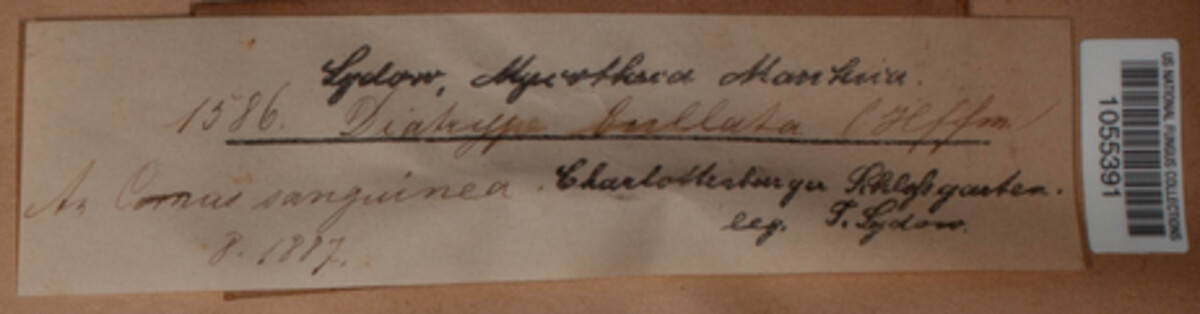 Sydow, Mycotheca Marchica.
1586. Diatrype bullata (Hffm)
An Cornus sanguinea. Charlottenburger Schloßgarten.
leg. P. Sydow.
8. 1887.
US NATIONAL FUNGUS COLLECTIONS
1055391